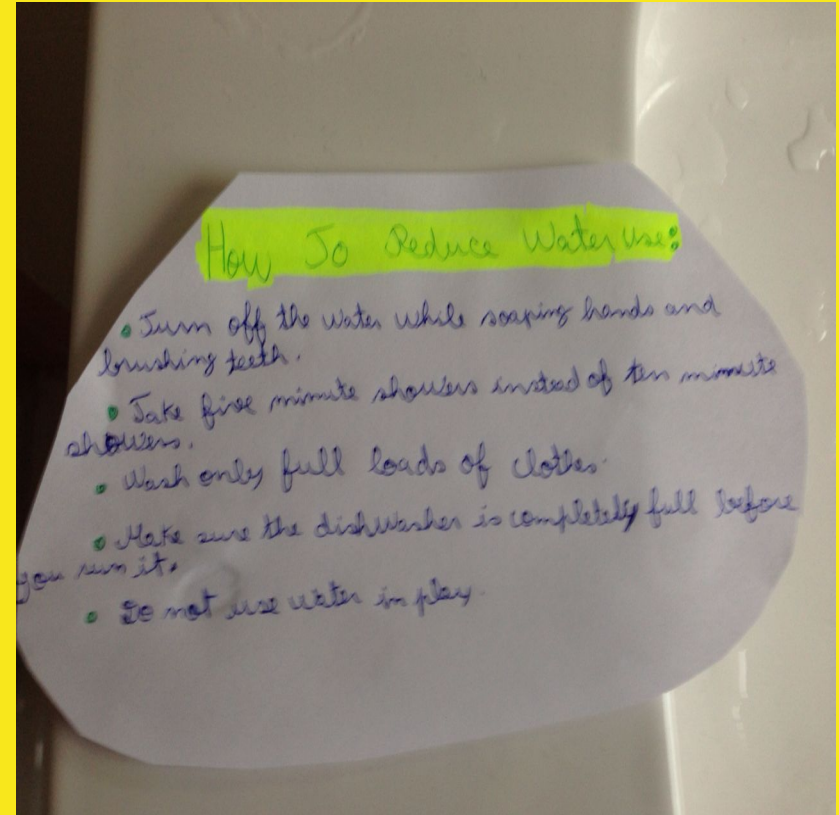 How To Reduce Water use:
• Turn off the water while soaping hands and
brushing teeth.
• Take five minute showers instead of ten minute
showers.
• Wash only full loads of clothes.
• Make sure the dishwasher is completely full before
you run it.
• Do not use water in play.